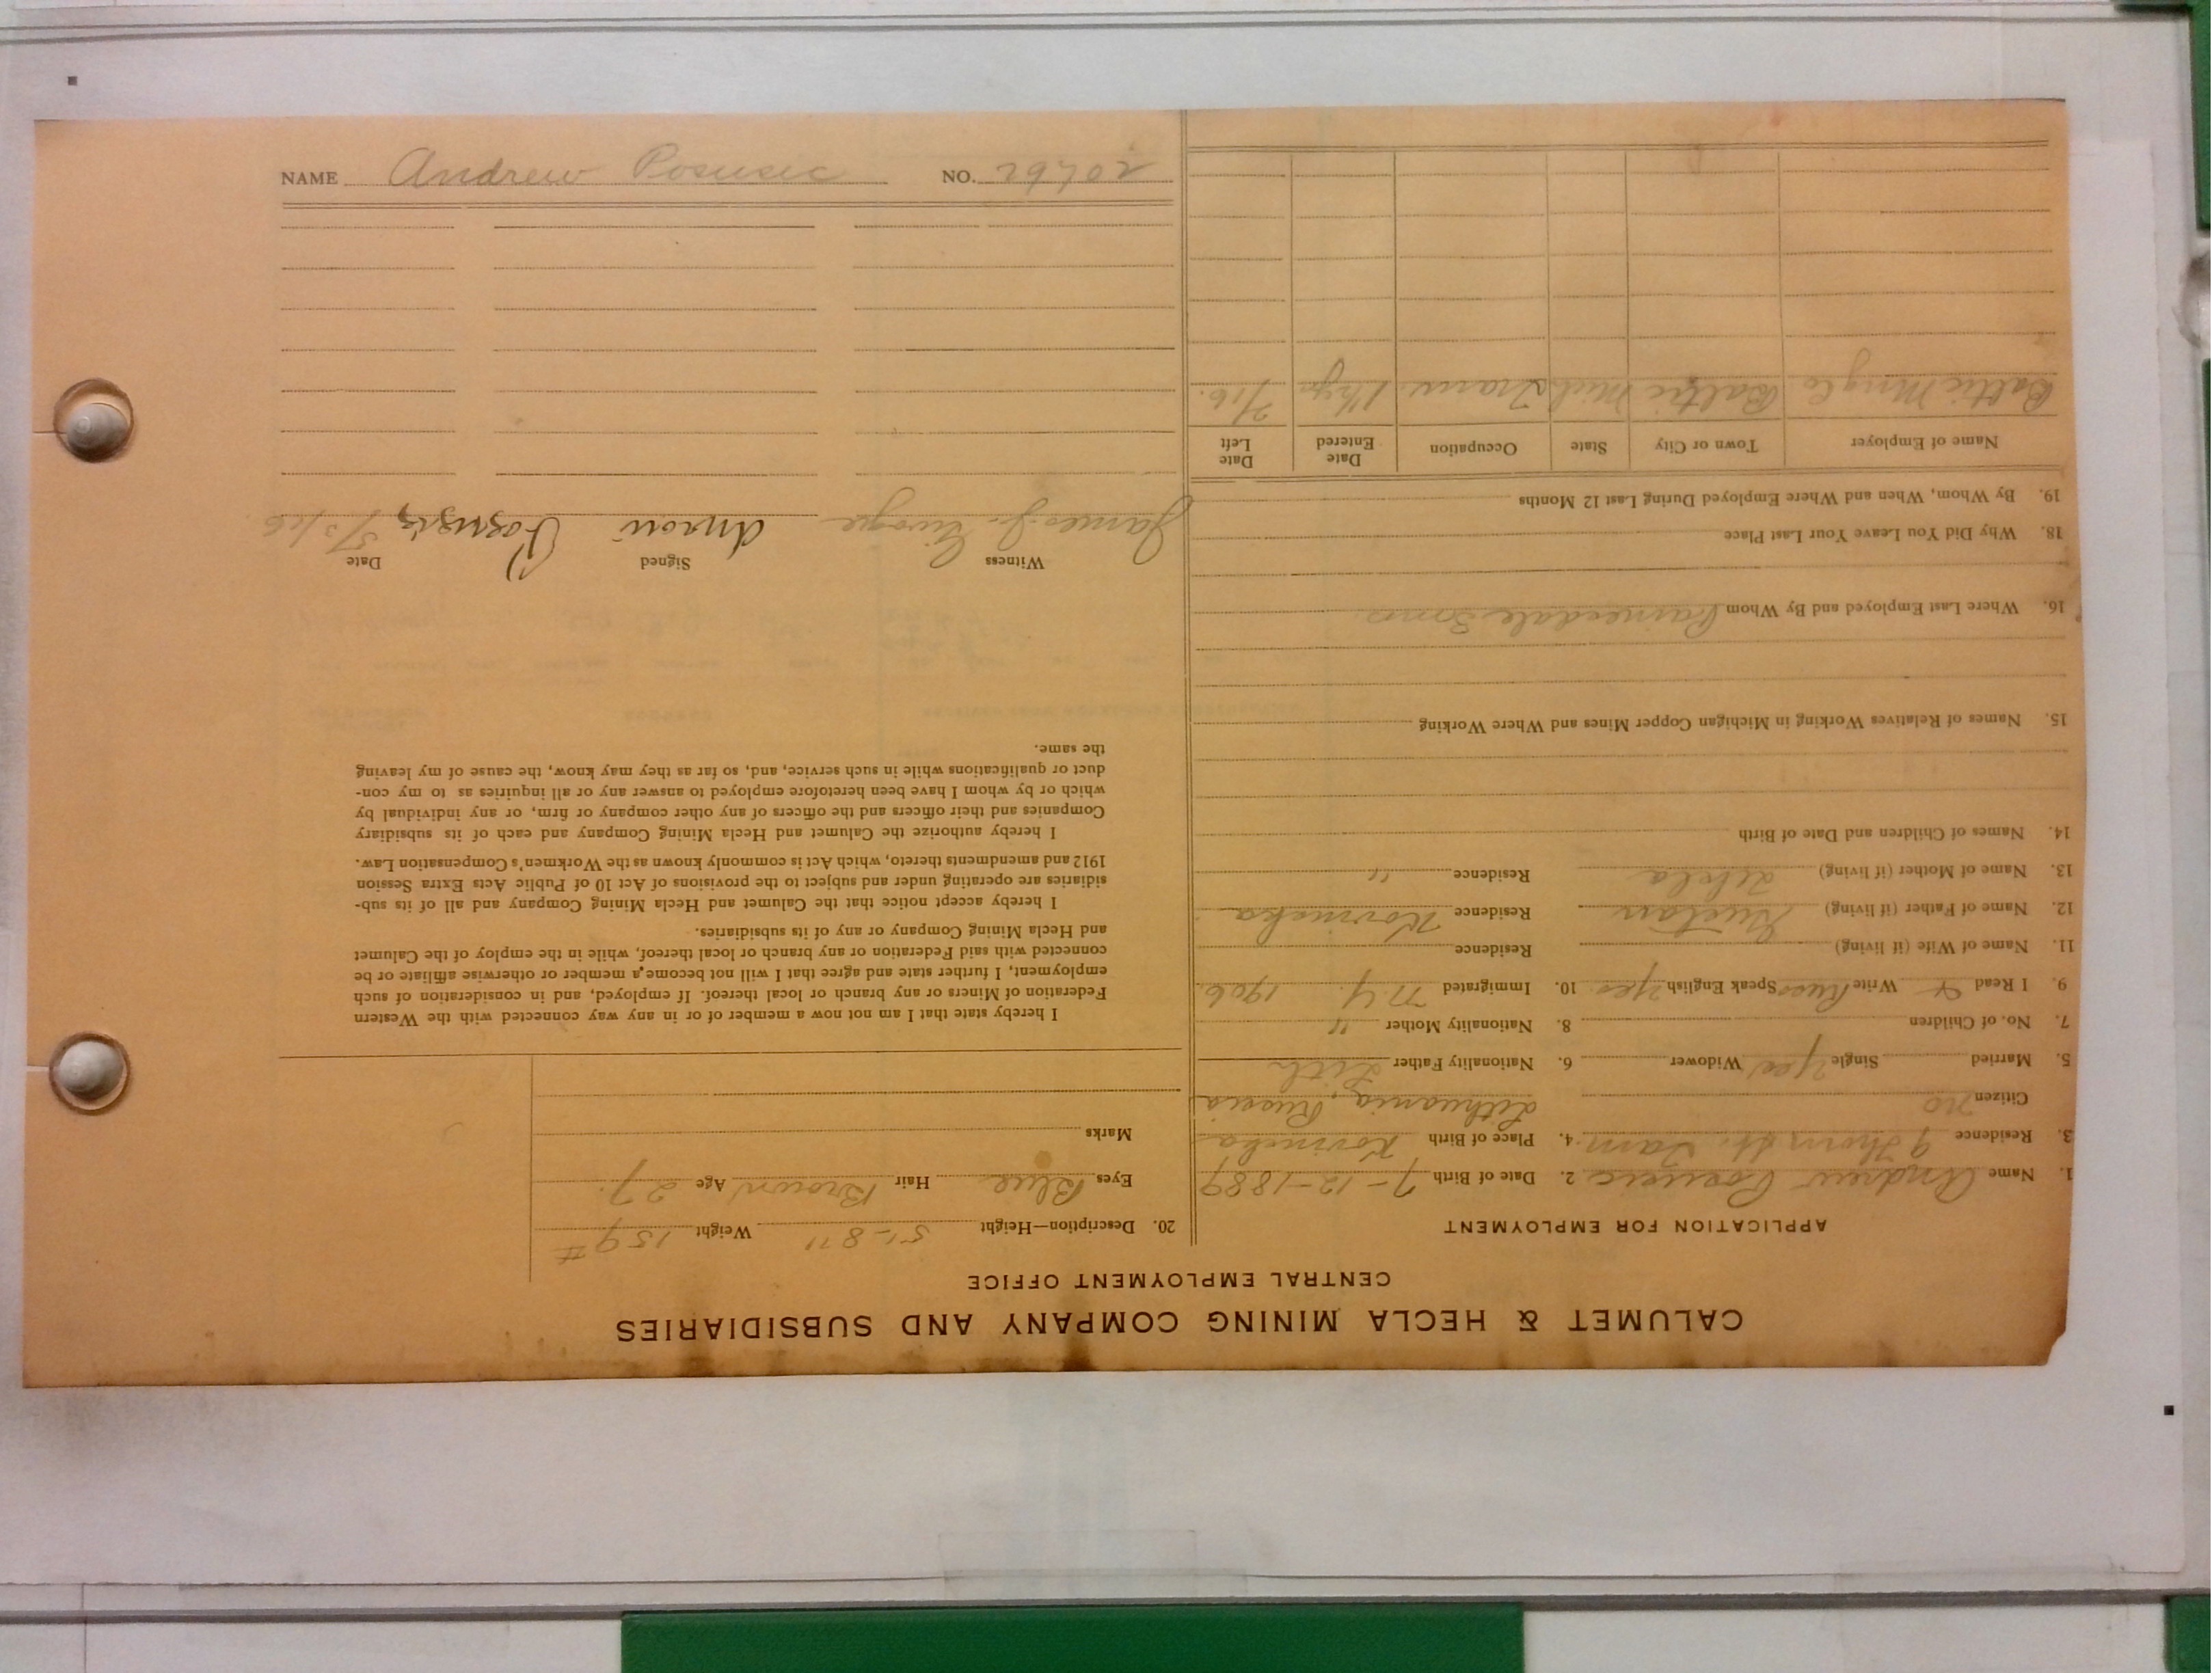 CALUMET & HECLA MINING COMPANY AND SUBSIDIARIES
CENTRAL EMPLOYMENT OFFICE
APPLICATION FOR EMPLOYMENT
1. Name Andrew Posusic 2. Date of Birth 7-12-1889
3. Residence 9 Thorn St. Lam. 4. Place of Birth
Citizen no Lithuania, Russia
5. Married Single yes Widower 6. Nationality Father Lith
7. No. of Children 8. Nationality Mother "
9. I Read & Write Russ Speak English yes 10. Immigrated N.Y. 1906
11. Name of Wife (if living) Residence
12. Name of Father (if living) Residence
13. Name of Mother (if living) Residence "
14. Names of Children and Date of Birth
15. Names of Relatives Working in Michigan Copper Mines and Where Working
16. Where Last Employed and By Whom Painesdale
18. Why Did You Leave Your Last Place
19. By Whom, When and Where Employed During Last 12 Months
Name of Employer Town or City State Occupation Date Entered Date Left
Baltic Mng Co Baltic Mich Tram 1½ yr 2/16.
20. Description—Height 5'-8" Weight 159#
Eyes Blue Hair Brown Age 27.
Marks
I hereby state that I am not now a member of or in any way connected with the Western
Federation of Miners or any branch or local thereof. If employed, and in consideration of such
employment, I further state and agree that I will not become a member or otherwise affiliate or be
connected with said Federation or any branch or local thereof, while in the employ of the Calumet
and Hecla Mining Company or any of its subsidiaries.
I hereby accept notice that the Calumet and Hecla Mining Company and all of its sub-
sidiaries are operating under and subject to the provisions of Act 10 of Public Acts Extra Session
1912 and amendments thereto, which Act is commonly known as the Workmen's Compensation Law.
I hereby authorize the Calumet and Hecla Mining Company and each of its subsidiary
Companies and their officers and the officers of any other company or firm, or any individual by
which or by whom I have been heretofore employed to answer any or all inquiries as to my con-
duct or qualifications while in such service, and, so far as they may know, the cause of my leaving
the same.
Witness Signed Date
James J.
NAME Andrew Posusic NO. 29702